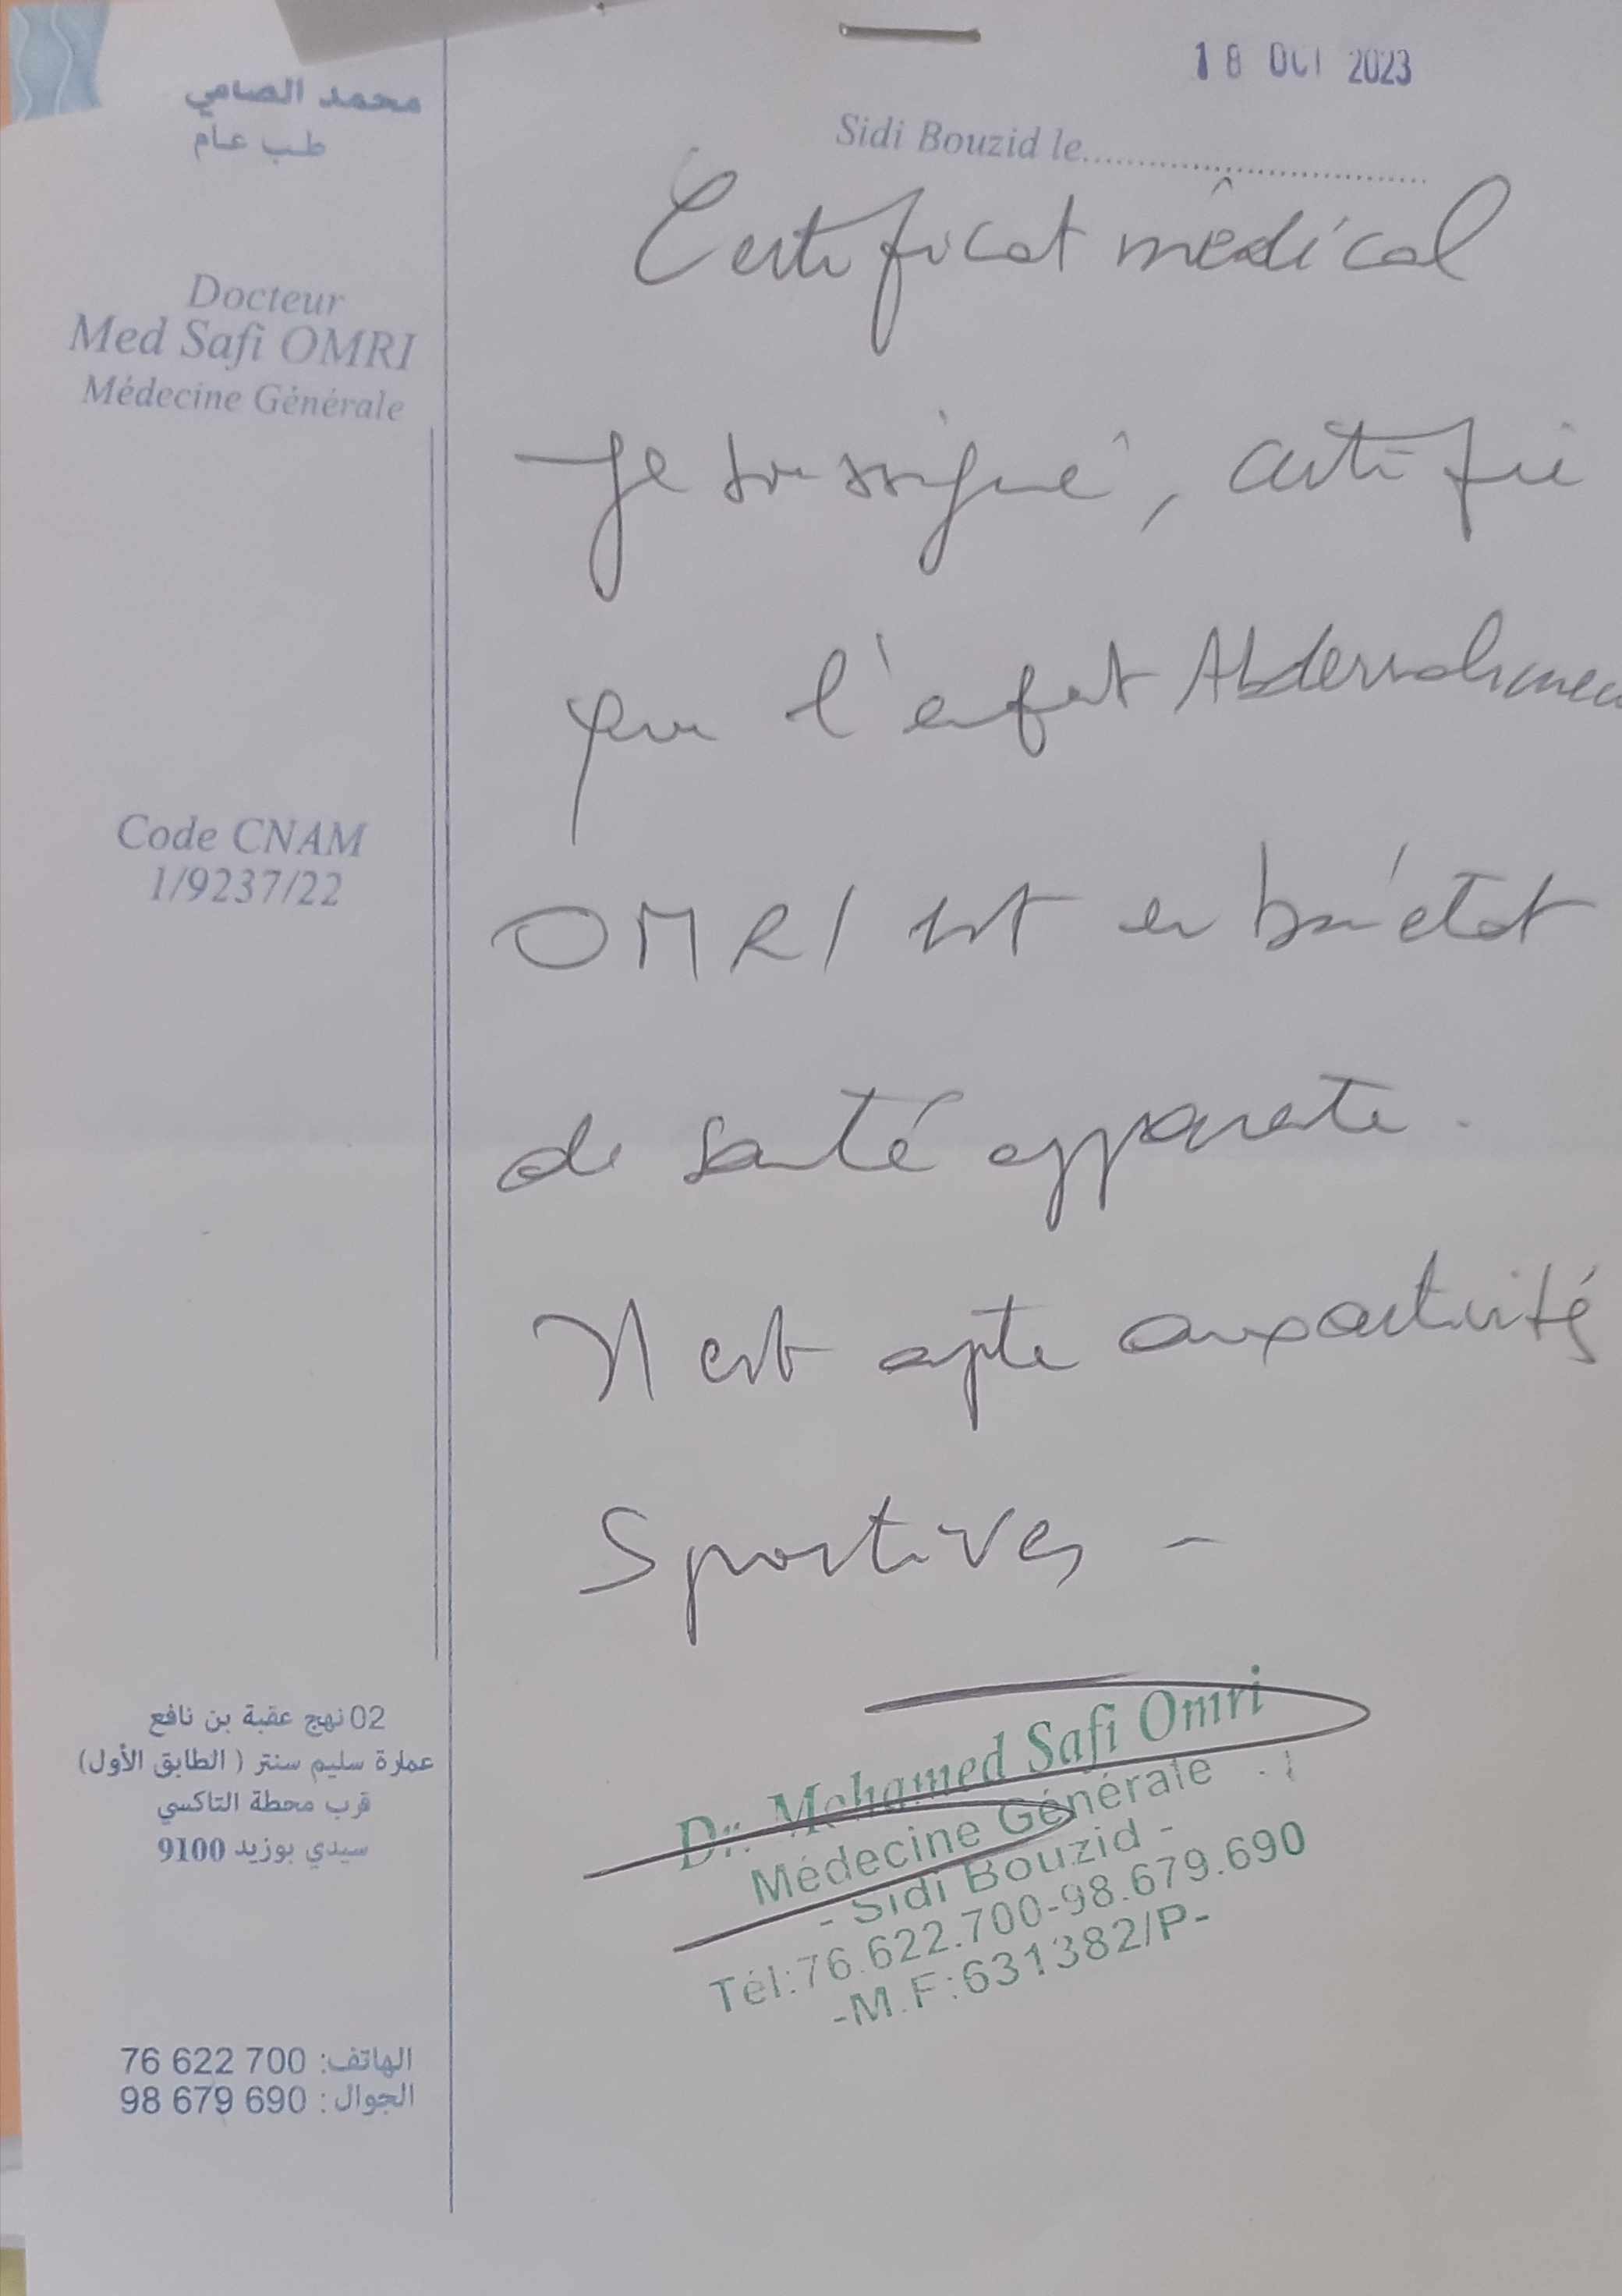 محمد الصامي
طب عام
Docteur
Med Safi OMRI
Médecine Générale
Code CNAM
1/9237/22
02 نهج عقبة بن نافع
عمارة سليم سنتر ( الطابق الأول)
قرب محطة التاكسي
سيدي بوزيد 9100
الهاتف: 76 622 700
الجوال : 98 679 690
18 OCT 2023
Sidi Bouzid le
Certificat médical
Je soussigné, certifie
que l'enfant Abderrahmen
OMRI est en bon état
de santé apparente.
Il est apte aux activités
Sportives -
Dr. Mohamed Safi Omri
Médecine Générale
- Sidi Bouzid -
Tél:76.622.700-98.679.690
-M.F:631382/P-